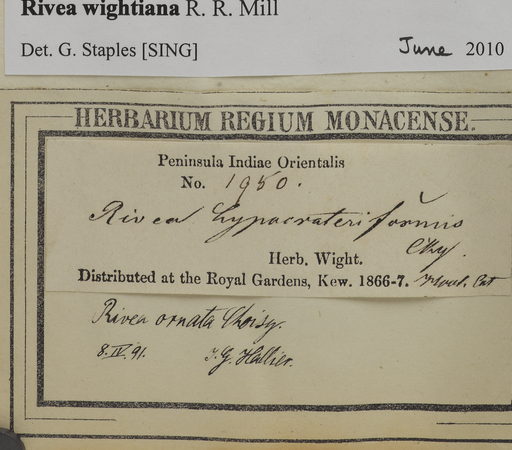 Rivea wightiana R. R. Mill
Det. G. Staples [SING] June 2010
HERBARIUM REGIUM MONACENSE.
Peninsula Indiae Orientalis
No. 1950.
Rivea hypocrateriformis
Chy.
Herb. Wight.
Distributed at the Royal Gardens, Kew. 1866-7.
Rivea ornata Choisy.
8.IV.91. H. Hallier.